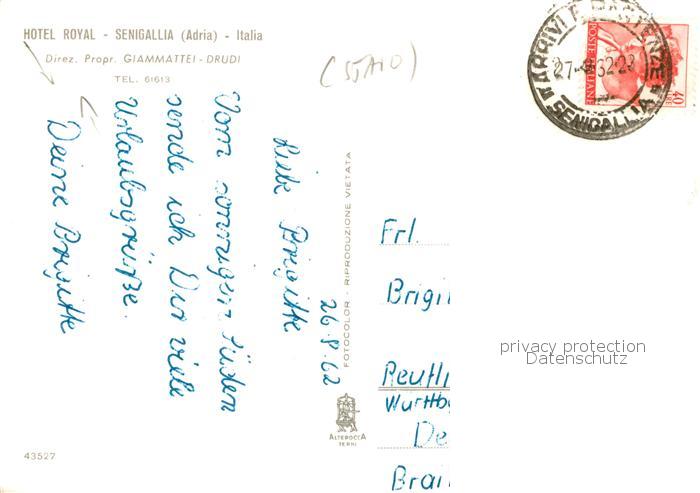 HOTEL ROYAL - SENIGALLIA (Adria) - Italia
Direz. Propr. GIAMMATTEI - DRUDI
TEL. 61613
26.8.62
Liebe Brigitte
Vom sonnigen Süden
sende ich Dir viele
Urlaubsgrüße.
Deine Brigitte
FOTOCOLOR - RIPRODUZIONE VIETATA
ALTEROCCA
TERNI
43527
ARRIVI E PARTENZE
SENIGALLIA
POSTE ITALIANE
40
Frl.
Brigi
Reutli
Württb
De
Brai
privacy protection
Datenschutz